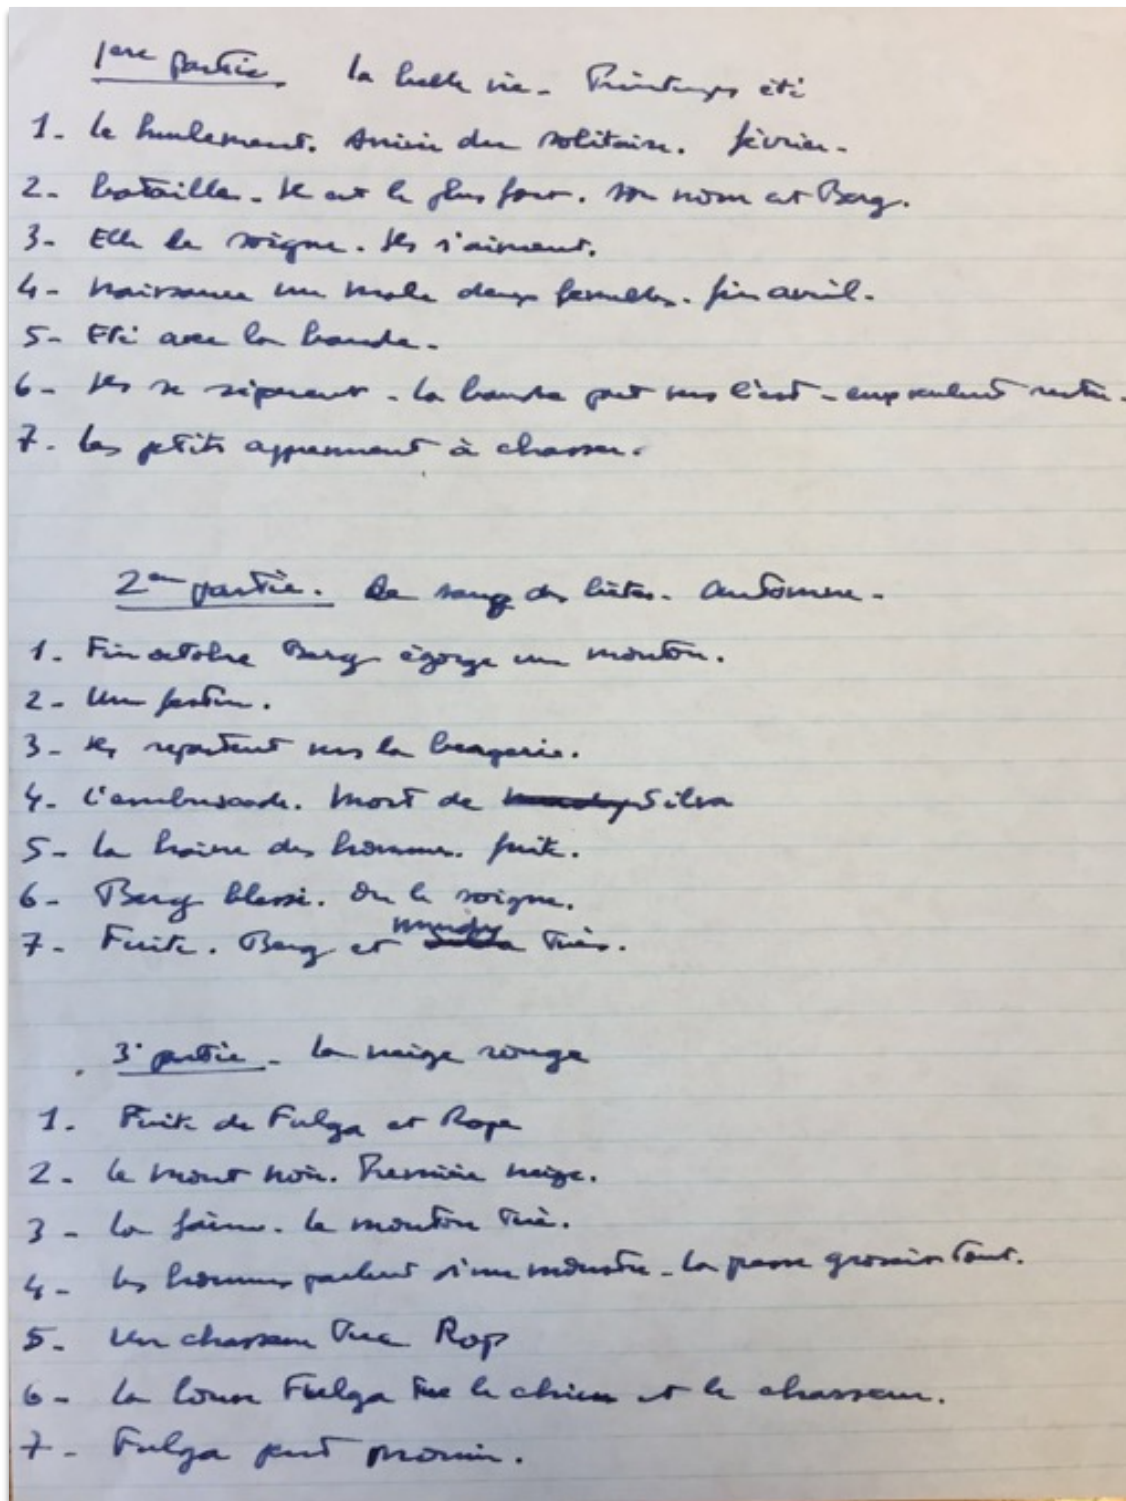 1ere partie. la belle vie - Printemps été
1- le hurlement. Arrivée du solitaire. février -
2- bataille - Il est le plus fort. son nom est Berg.
3- Elle le soigne. Ils s'aiment.
4- Naissance un mâle deux femelles. fin avril -
5- Eté avec la bande -
6- Ils se séparent - la bande part vers l'est - eux veulent rester -
7- les petits apprennent à chasser.
2em partie. Le sang des bêtes - Automne -
1. Fin octobre Berg égorge un mouton.
2- Un festin.
3- Ils repartent vers la bergerie.
4- l'embuscade. Mort de Silva
5- la haine des hommes. fuite.
6- Berg blessé. On le soigne.
7- Fuite. Berg et Mundy tués.
3e partie - la neige rouge
1. Fuite de Fulga et Rop
2- le mont noir. Première neige.
3- la faim. le mouton tué.
4- les hommes parlent d'un monstre - la peur grossit tout.
5- Un chasseur tue Rop
6- la louve Fulga tue le chien et le chasseur.
7- Fulga peut mourir.